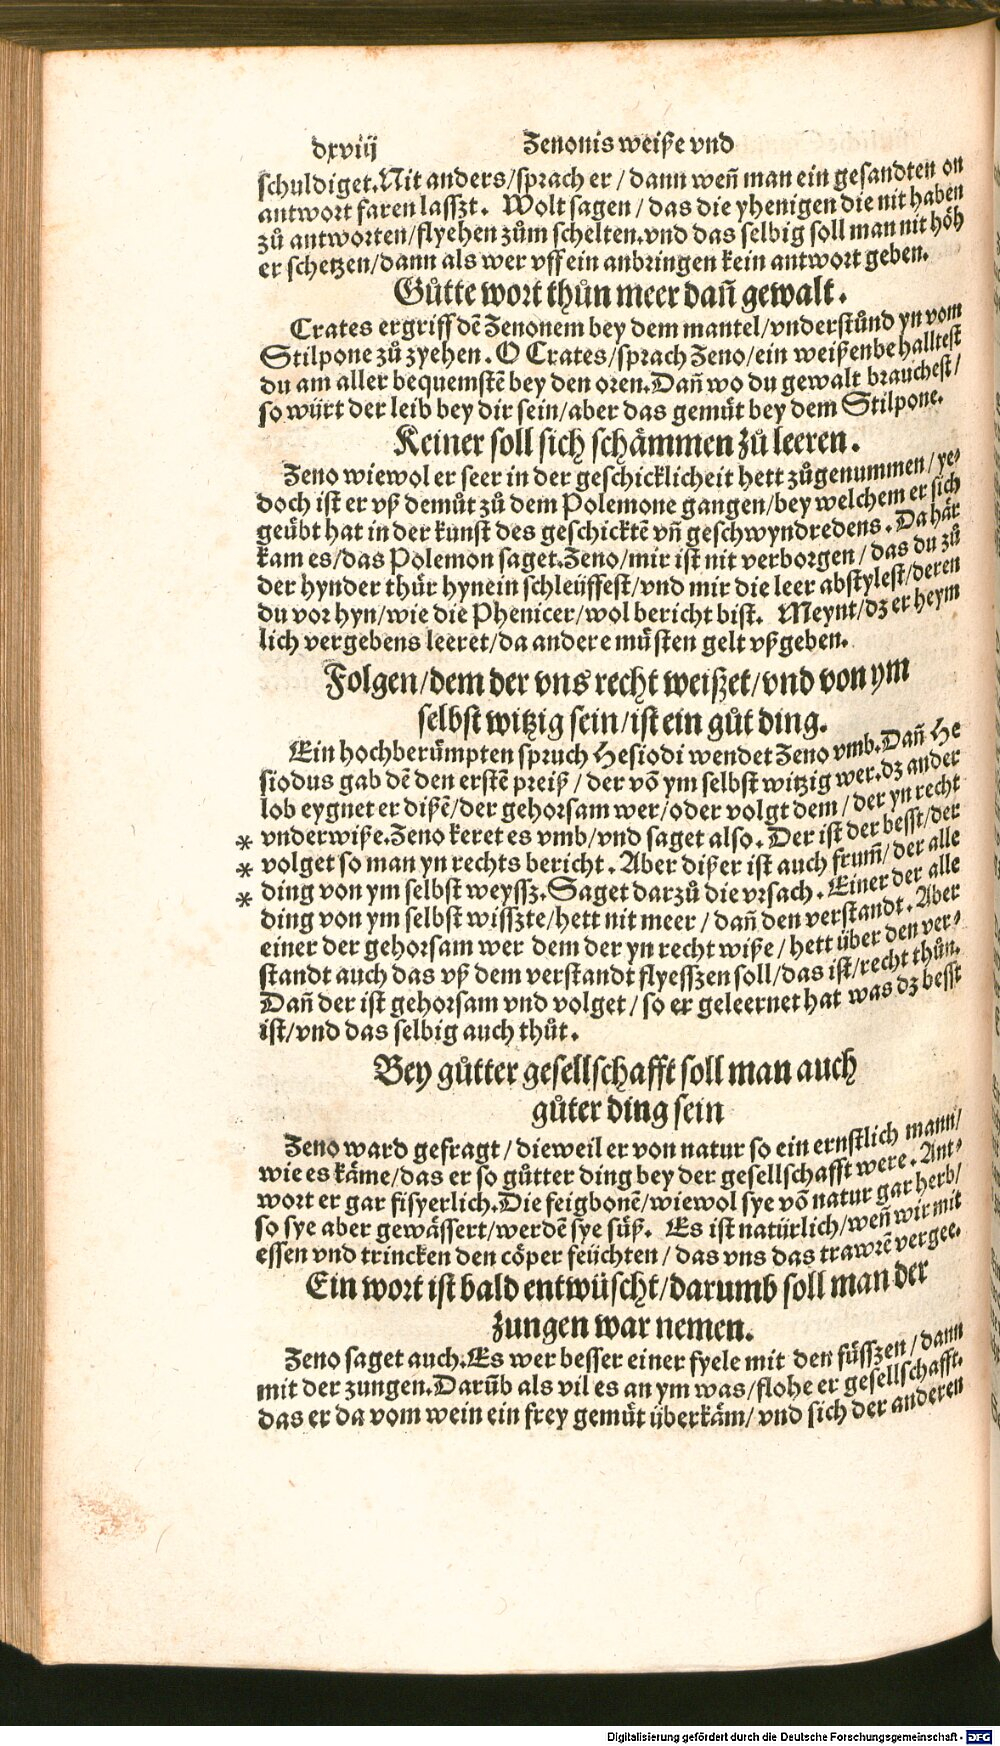 dxviij Zenonis weiße vnd
schuldiget. Nit anders/sprach er / dann weñ man ein gesandten on
antwort faren lasszt. Wolt sagen / das die yhenigen die nit haben
zů antworten/flyehen zům schelten. vnd das selbig soll man nit höh
er schetzen/dann als wer vff ein anbringen kein antwort geben.
Gůtte wort thůn meer dañ gewalt.
Crates ergriff dē Zenonem bey dem mantel/vnderstůnd yn vom
Stilpone zů zyehen. O Crates/sprach Zeno/ein weißen behalltest
du am aller bequemstē bey den oren. Dañ wo du gewalt brauchest/
so würt der leib bey dir sein/aber das gemüt bey dem Stilpone.
Keiner soll sich schämmen zů leeren.
Zeno wiewol er seer in der geschicklicheit hett zůgenummen/ye⸗
doch ist er vß demůt zů dem Polemone gangen/bey welchem er sich
geübt hat in der kunst des geschicktē vñ geschwyndredens. Da här
kam es/das Polemon saget. Zeno/mir ist nit verborgen/das du zů
der hynder thür hynein schleüffest/vnd mir die leer abstylest/deren
du vor hyn/wie die Phenicer/wol bericht bist. Meynt/dz er heym
lich vergebens leeret/da andere müsten gelt vßgeben.
Folgen/dem der vns recht weißet/vnd von ym
selbst witzig sein/ist ein gůt ding.
Ein hochberümpten spruch Hesiodi wendet Zeno vmb. Dañ He
siodus gab dē den erstē preiß / der vō ym selbst witzig wer. dz ander
lob eygnet er dißē/der gehorsam wer/oder volgt dem / der yn recht
* vnderwiße. Zeno keret es vmb/vnd saget also. Der ist der besst/der
* volget so man yn rechts bericht. Aber dißer ist auch frum̃/der alle
* ding von ym selbst weyssz. Saget darzů die vrsach. Einer der alle
ding von ym selbst wisszte/hett nit meer / dañ den verstandt. Aber
einer der gehorsam wer dem der yn recht wiße / hett über den ver⸗
standt auch das vß dem verstandt flyesszen soll/das ist/recht thůn.
Dañ der ist gehorsam vnd volget / so er geleernet hat was dz besst
ist/vnd das selbig auch thůt.
Bey gůtter gesellschafft soll man auch
gůter ding sein
Zeno ward gefragt / dieweil er von natur so ein ernstlich mann/
wie es käme/das er so gůtter ding bey der gesellschafft were. Ant⸗
wort er gar fisyerlich. Die feigbonē/wiewol sye vō natur gar herb/
so sye aber gewässert/werdē sye süß. Es ist natürlich/weñ wir mit
essen vnd trincken den cöper feüchten / das vns das trawrē vergee.
Ein wort ist bald entwüscht/darumb soll man der
zungen war nemen.
Zeno saget auch. Es wer besser einer fyele mit den füsszen / dann
mit der zungen. Darūb als vil es an ym was/flohe er gesellschafft.
das er da vom wein ein frey gemüt überkäm/ vnd sich der anderen
Digitalisierung gefördert durch die Deutsche Forschungsgemeinschaft - DFG